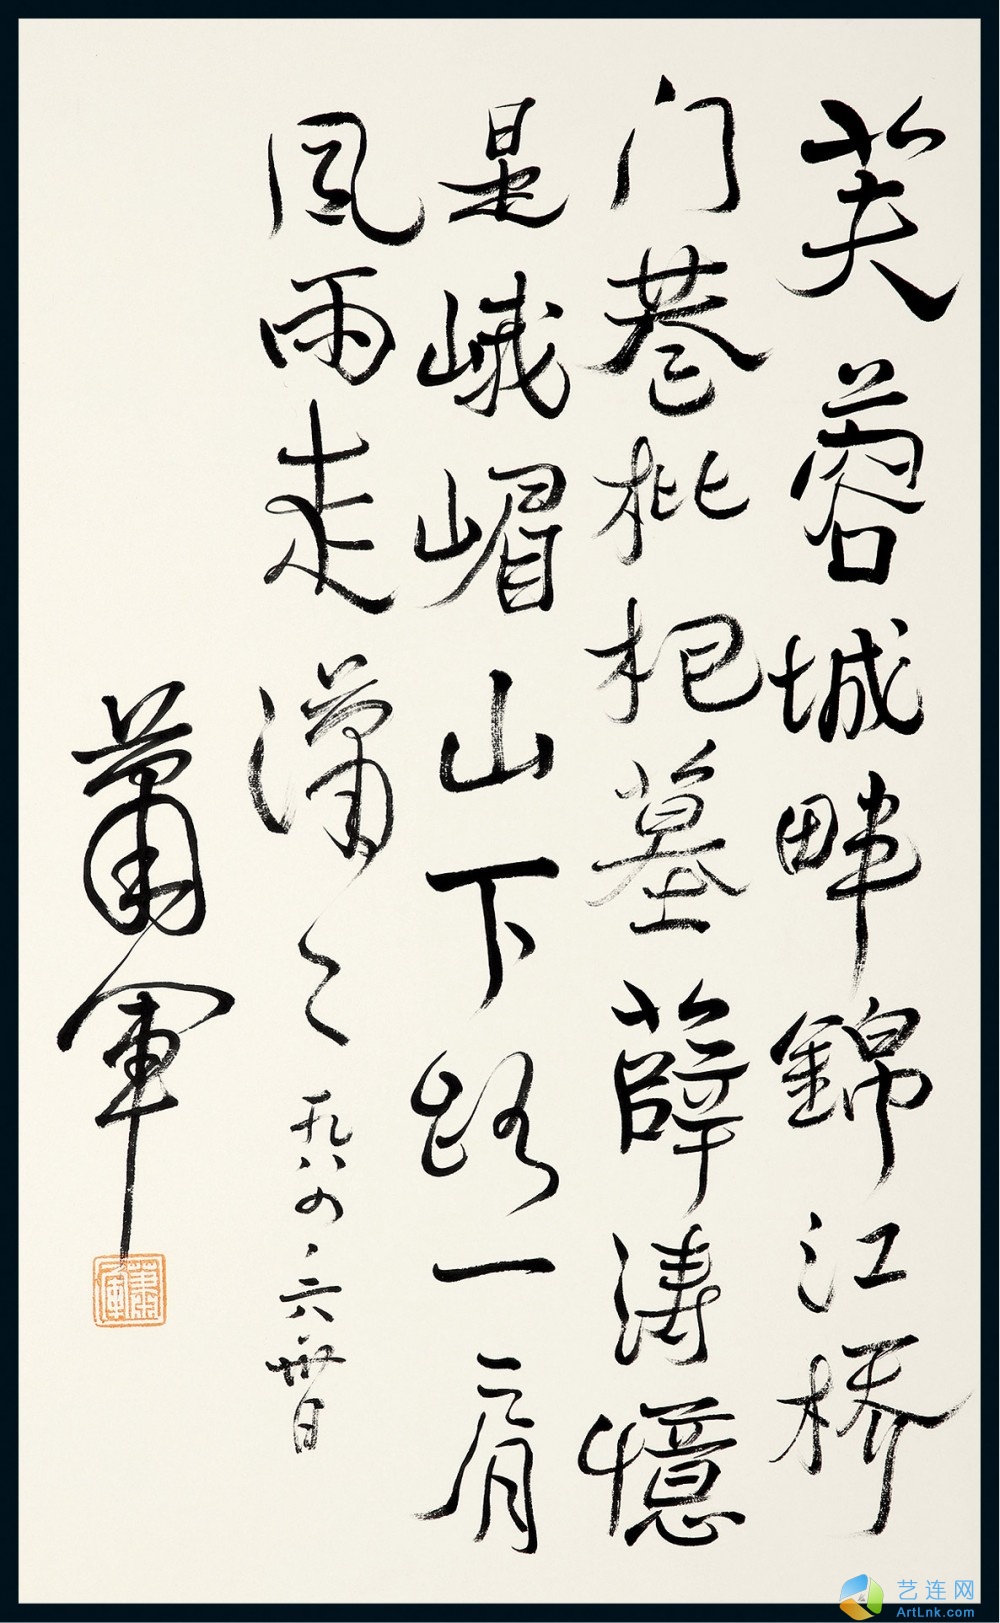 芙蓉城畔錦江桥
门巷枇杷墓薛涛憶
是峨嵋山下路一肩
风雨走潇々一九八四、六、卅日
萧軍
蕭軍
艺连网
ArtLnk.com